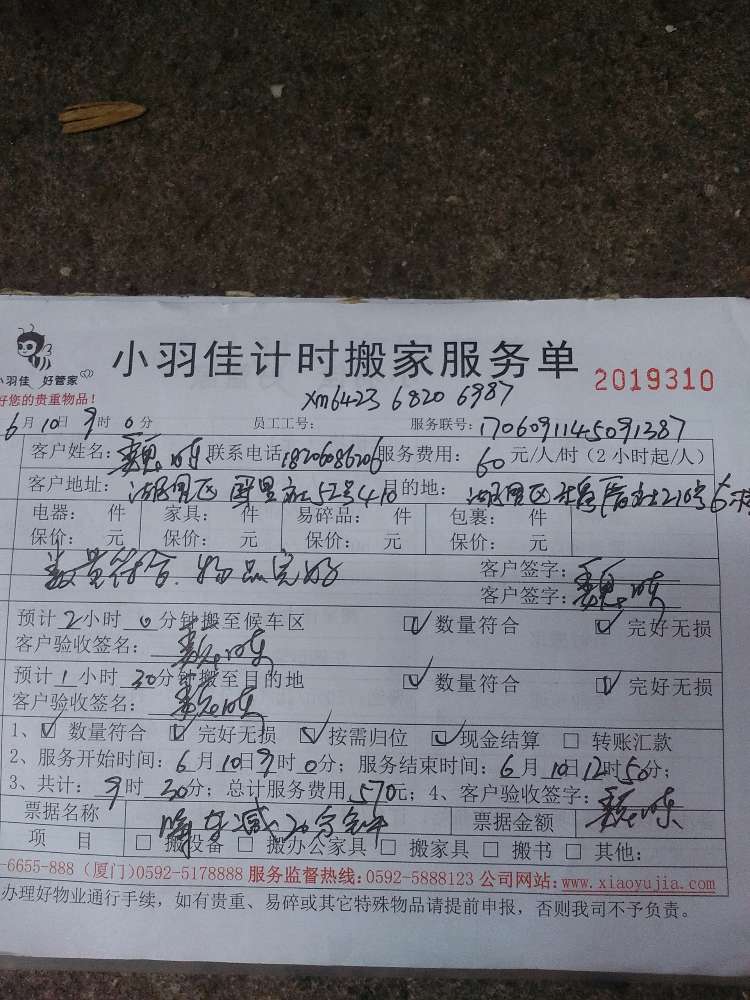 小羽佳 好管家
小羽佳计时搬家服务单
2019310
好您的贵重物品！
xm6423 6820 6987
6月10日9时0分 员工工号： 服务联号：1706091145091387
客户姓名： 联系电话18206086206 服务费用：60元/人/时（2小时起/人）
客户地址：湖里区 社52号410 目的地：湖里区 社216号6
电器： 件 家具： 件 易碎品： 件 包裹： 件
保价： 元 保价： 元 保价： 元 保价： 元
数量符合.物品完好 客户签字：
客户签字：
预计2小时0分钟搬至候车区 数量符合 完好无损
客户验收签名：
预计1小时30分钟搬至目的地 数量符合 完好无损
客户验收签名：
1、 数量符合 完好无损 按需归位 现金结算 转账汇款
2、服务开始时间：6月10日9时0分；服务结束时间：6月10日12时50分；
3、共计：9时30分；总计服务费用570元；4、客户验收签字：
票据名称 票据金额
项 目 搬设备 搬办公家具 搬家具 搬书 其他：
-6655-888（厦门）0592-5178888 服务监督热线：0592-5888123 公司网站：www.xiaoyujia.com
办理好物业通行手续，如有贵重、易碎或其它特殊物品请提前申报，否则我司不予负责。